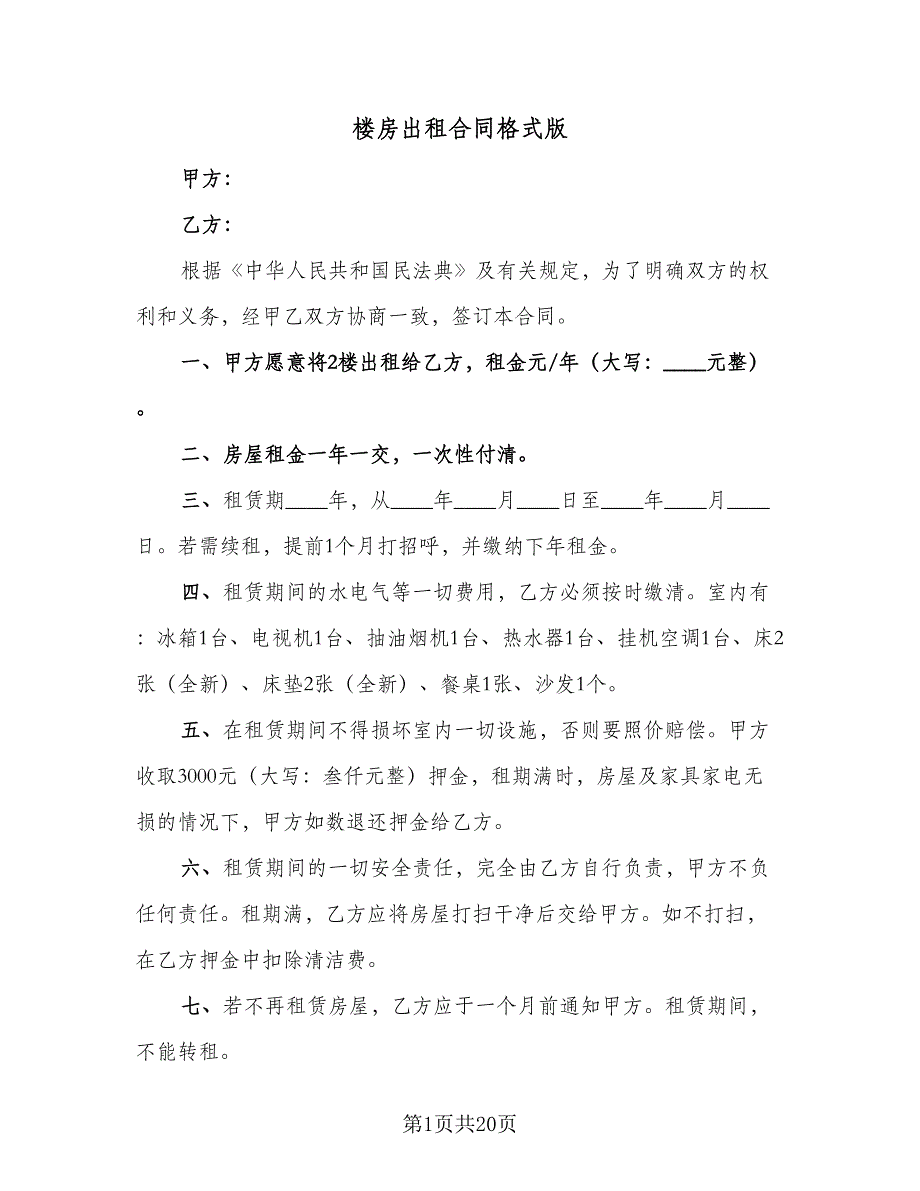 楼房出租合同格式版
甲方：
乙方：
根据《中华人民共和国民法典》及有关规定，为了明确双方的权
利和义务，经甲乙双方协商一致，签订本合同。
一、甲方愿意将2楼出租给乙方，租金元/年（大写：____元整）
。
二、房屋租金一年一交，一次性付清。
三、租赁期____年，从____年____月____日至____年____月____
日。若需续租，提前1个月打招呼，并缴纳下年租金。
四、租赁期间的水电气等一切费用，乙方必须按时缴清。室内有
：冰箱1台、电视机1台、抽油烟机1台、热水器1台、挂机空调1台、床2
张（全新）、床垫2张（全新）、餐桌1张、沙发1个。
五、在租赁期间不得损坏室内一切设施，否则要照价赔偿。甲方
收取3000元（大写：叁仟元整）押金，租期满时，房屋及家具家电无
损的情况下，甲方如数退还押金给乙方。
六、租赁期间的一切安全责任，完全由乙方自行负责，甲方不负
任何责任。租期满，乙方应将房屋打扫干净后交给甲方。如不打扫，
在乙方押金中扣除清洁费。
七、若不再租赁房屋，乙方应于一个月前通知甲方。租赁期间，
不能转租。
第1页共20页